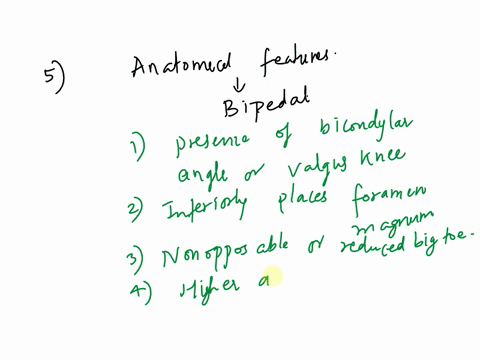 5) Anatomical features.
↓
Bipedal
1) presence of bicondylar
angle or valgus knee
2) Inferiorly places foramen
magnum
3) Nonopposable or reduced big toe.
4) Higher a